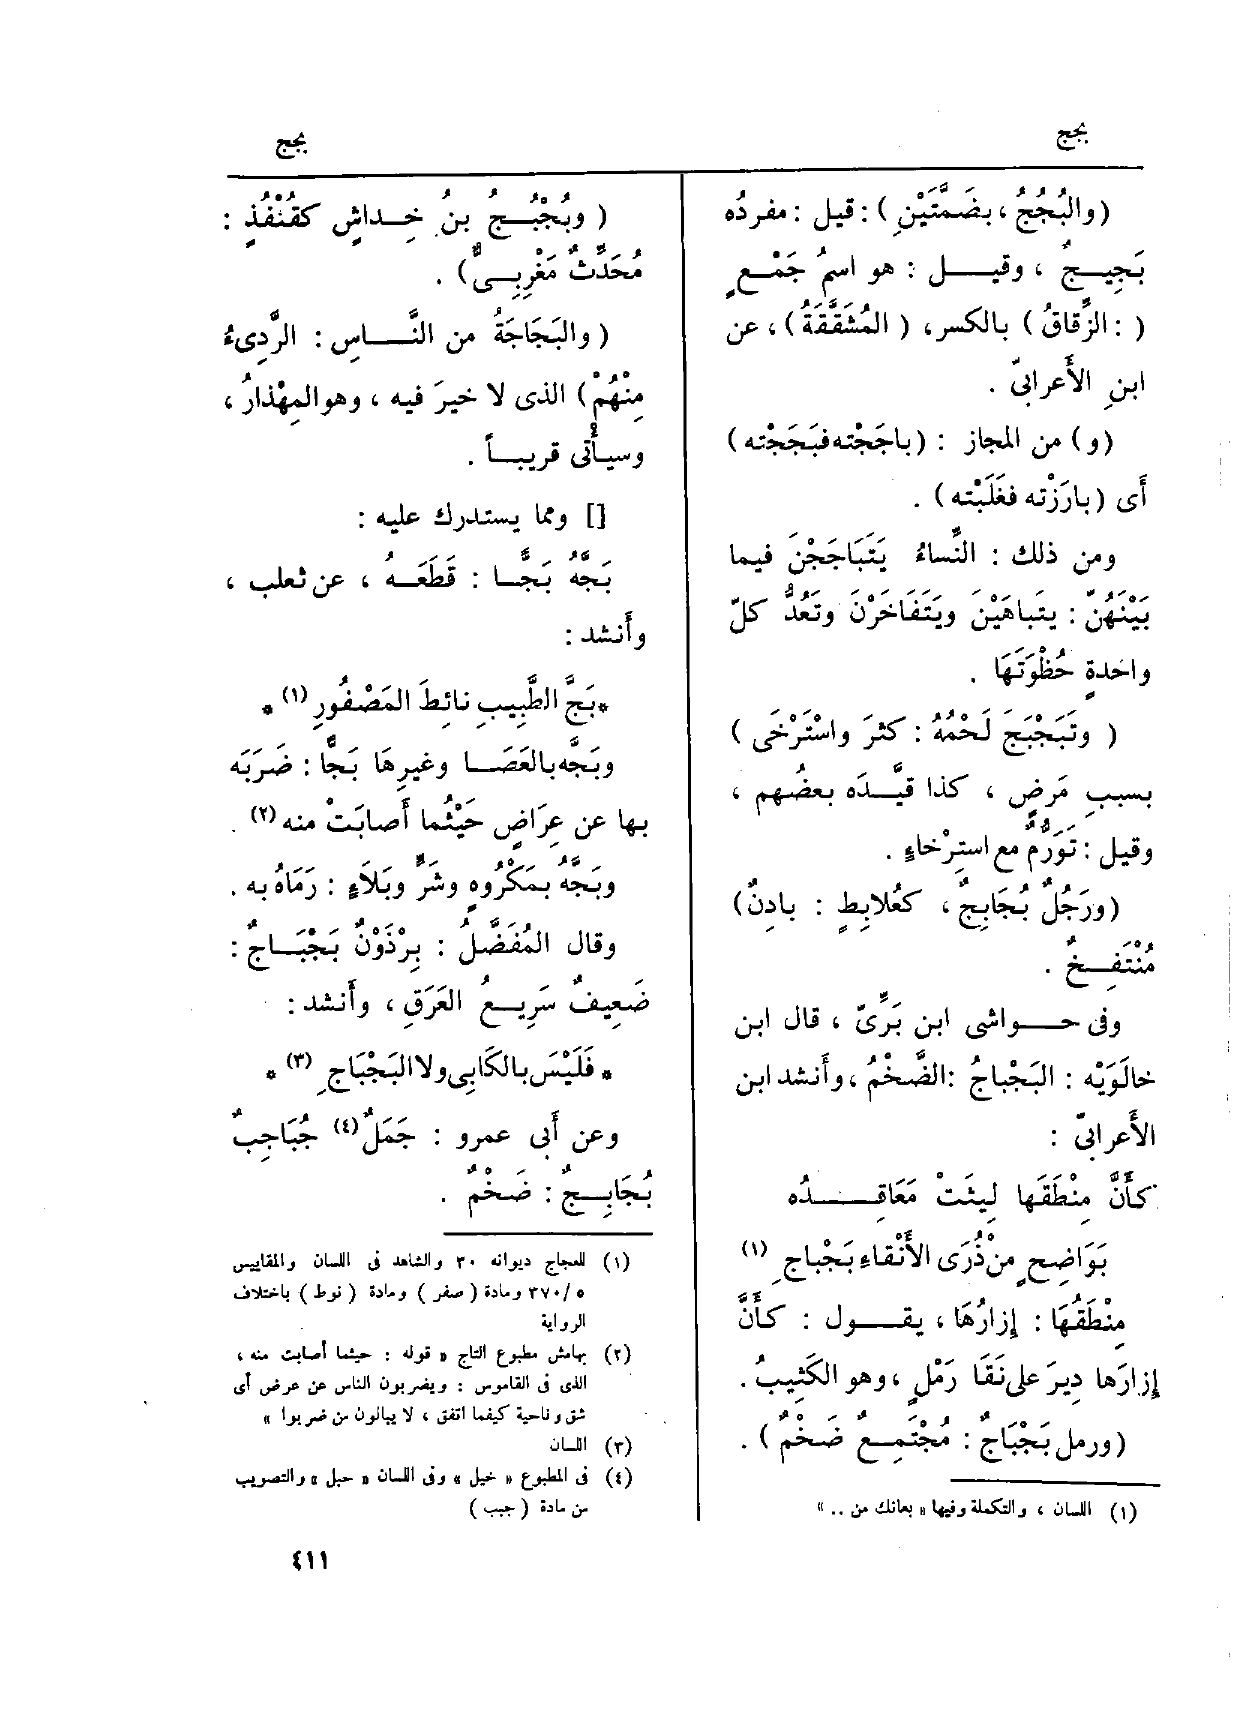 بجج
بجج
(والبُجُجُ ، بضَمَّتَيْنِ) : قيل : مفردُه
بَجِيجٌ ، وقيل : هو اسمُ جَمْعٍ
( : الزِّقَاقُ) بالكسر، (المُشَقَّقَةُ) ، عن
ابنِ الأَعرابىّ .
(و) من المجاز : (باجَجْته فبَجَجْته)
أَى (بارَزْته فغَلَبْته) .
ومن ذلك : النِّساءُ يَتَبَاجَجْنَ فيما
بَيْنَهُنّ : يتَباهَيْنَ ويَتَفَاخَرْنَ وتَعُدُّ كلّ
واحدةٍ حُظْوَتَهَا .
( وتَبَجْبَجَ لَحْمُهُ : كثرَ واسْتَرْخَى )
بسببِ مَرضٍ ، كذا قيَّده بعضُهم ،
وقيل : تَوَرُّمٌ مع استِرْخاءٍ .
(ورَجُلٌ بُجَابِجٌ ، كعُلابِطٍ : بادِنٌ)
مُنْتَفِخٌ .
وفى حواشى ابن بَرِّىّ ، قال ابن
خالَوَيْه : البَجْباجُ : الضَّخْمُ ، وأَنشد ابن
الأَعرابىّ :
كأَنَّ مِنْطَقَها لِيثَتْ مَعَاقِدُه
بَوَاضِحٍ من ذُرَى الأَنْقاءِ بَجْباجِ (١)
مِنْطَقُهَا : إِزارُهَا ، يقول : كأَنَّ
إِزارَها دِيرَ على نَقَا رَمْلٍ ، وهو الكَثِيبُ .
(ورمل بَجْبَاجٌ : مُجْتَمِعٌ ضَخْمٌ) .
(١) اللسان ، والتكملة وفيها « بعانك من .. »
( وبُجْبُجُ بنُ خِداشٍ كقُنْفُذٍ :
مُحَدِّثٌ مَغْرِبِىٌّ) .
( والبَجَاجَةُ من النَّاسِ : الرَّدِىءُ
مِنْهُمْ) الذى لا خيرَ فيه ، وهو المِهْذارُ ،
وسيأْتى قريباً .
[] ومما يستدرك عليه :
بَجَّهُ بَجًّا : قَطَعَهُ ، عن ثعلب ،
وأَنشد :
* بَجَّ الطَّبِيبِ نائِطَ المَصْفُورِ (١) *
وبَجَّه بالعَصَا وغيرِهَا بَجًّا : ضَرَبَه
بها عن عِرَاضٍ حَيْثُما أَصابَتْ منه (٢) .
وبَجَّهُ بمَكْرُوهٍ وشَرٍّ وبَلاَءٍ : رَمَاهُ به .
وقال المُفَضَّلُ : بِرْذَوْنٌ بَجْبَاجٌ :
ضَعِيفٌ سَرِيعُ العَرَقِ ، وأَنشد :
* فَلَيْسَ بالكَابِى ولا البَجْبَاجِ (٣) *
وعن أَبى عمرو : جَمَلٌ (٤) جُبَاجِبٌ
بُجَابِجٌ : ضَخْمٌ .
(١) للعجاج ديوانه ٣٠ والشاهد فى اللسان والمقاييس
٥/ ٣٧٠ ومادة ( صفر ) ومادة ( نوط ) باختلاف
الرواية
(٢) بهامش مطبوع التاج « قوله : حيثما أصابت منه ،
الذى فى القاموس : ويضربون الناس عن عرض أى
شق وناحية كيفما اتفق ، لا يبالون من ضربوا »
(٣) اللسان
(٤) فى المطبوع « خيل » وفى اللسان « حبل » والتصويب
من مادة ( جبب )
٤١١